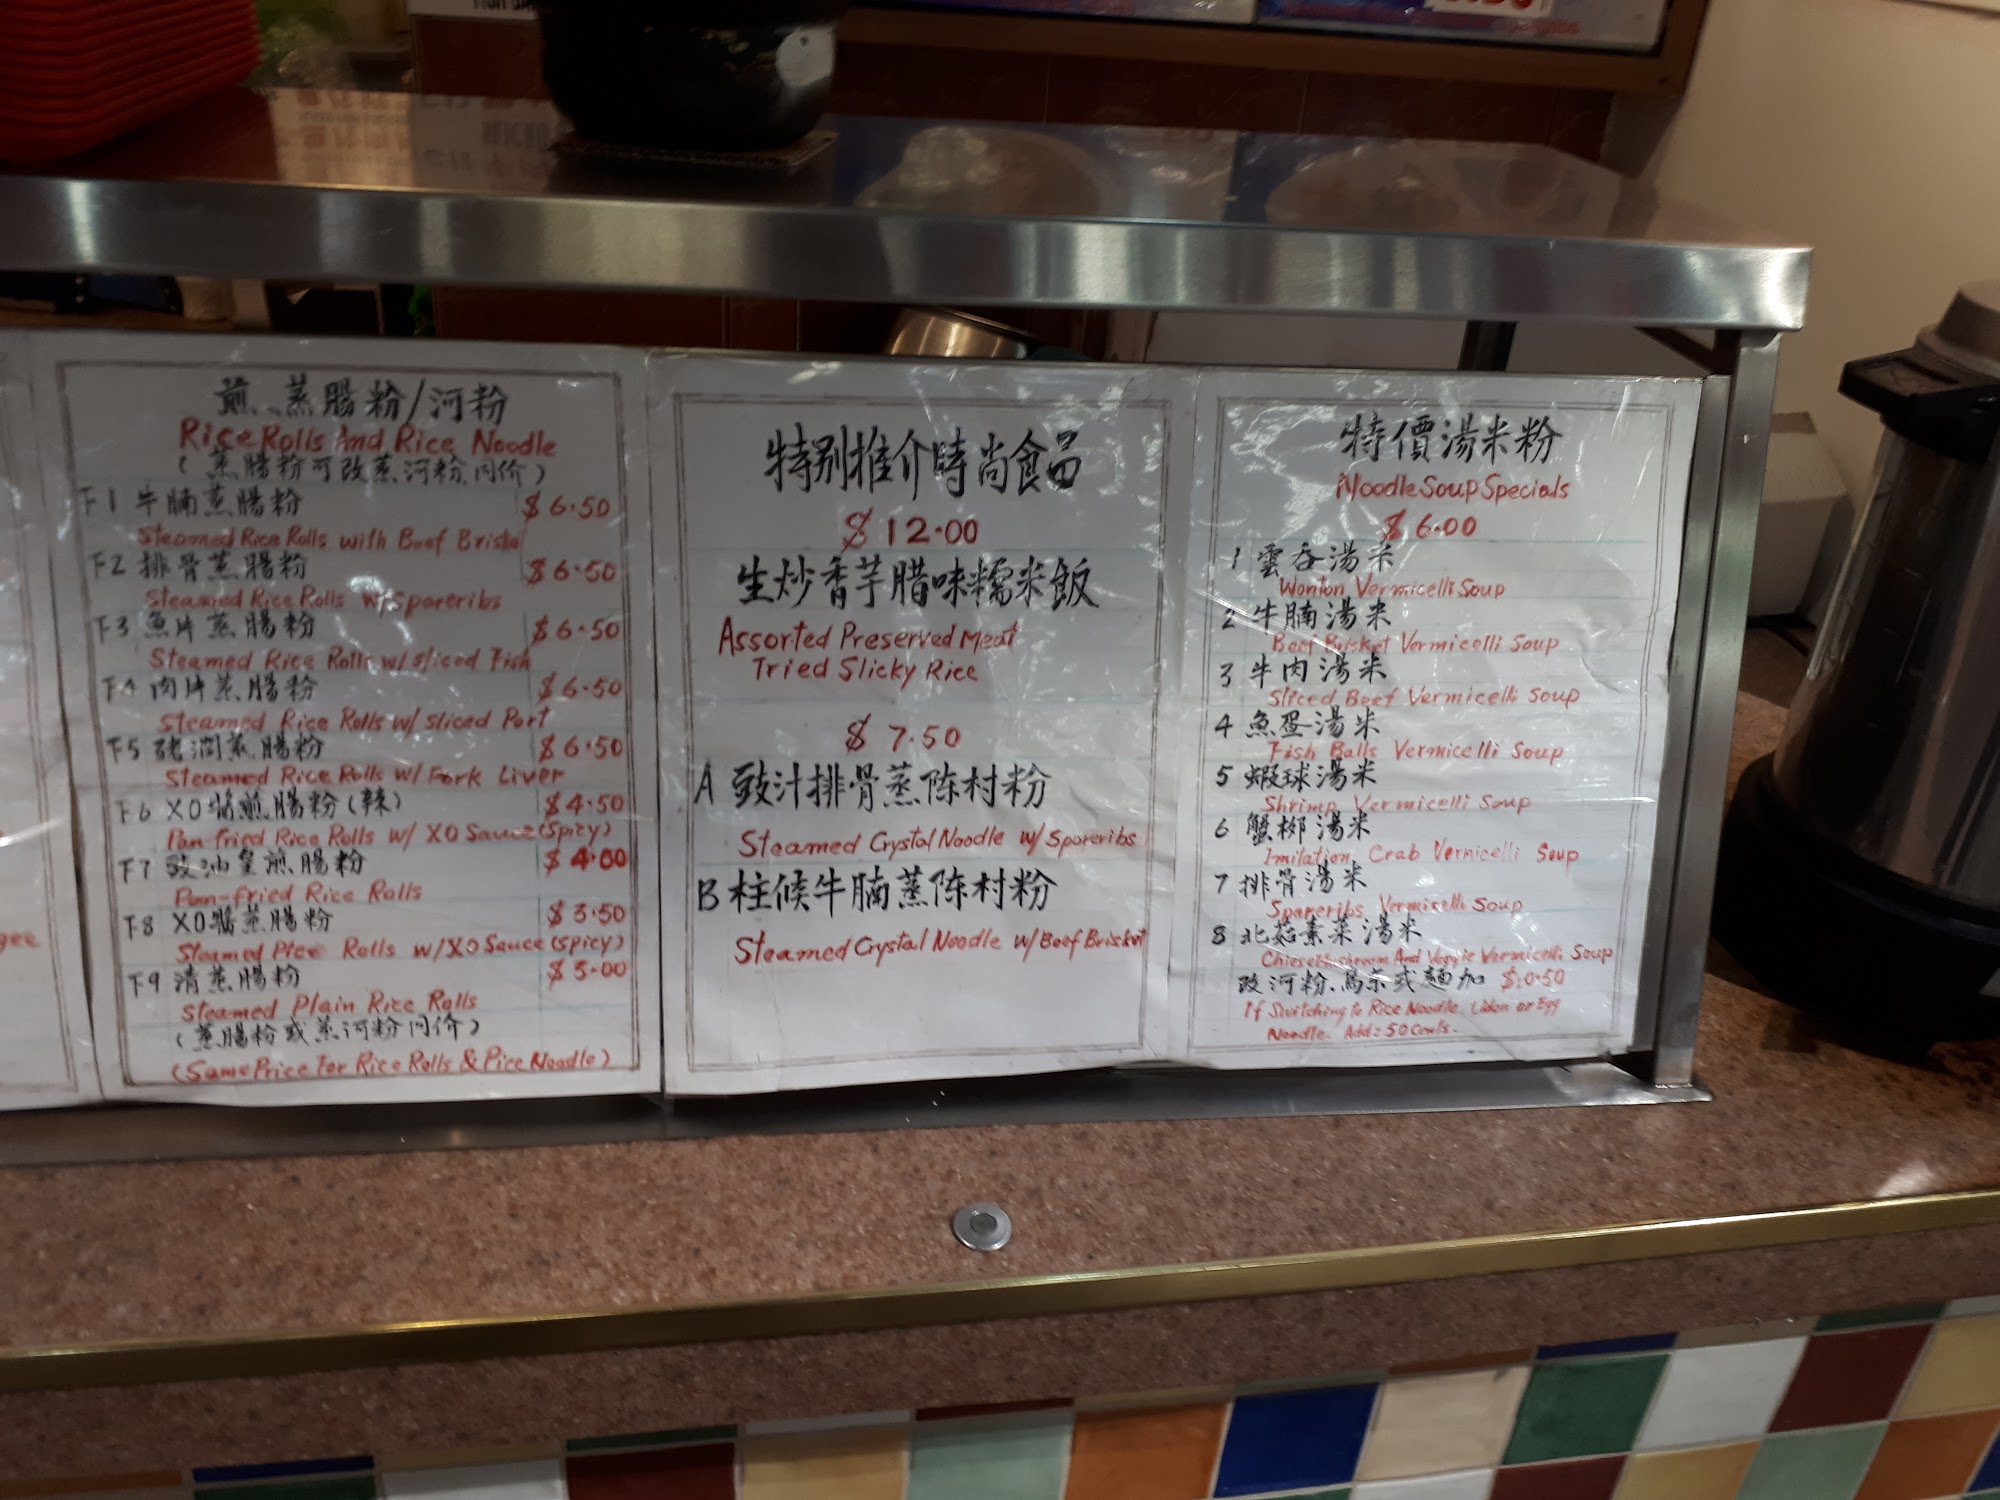 煎、蒸腸粉/河粉
Rice Rolls And Rice Noodle
(蒸腸粉可改蒸河粉同价)
F1 牛腩蒸腸粉 $6.50
Steamed Rice Rolls with Beef Briske
F2 排骨蒸腸粉 $6.50
Steamed Rice Rolls w/Spareribs
F3 魚片蒸腸粉 $6.50
Steamed Rice Rolls w/sliced Fish
F4 肉片蒸腸粉 $6.50
Steamed Rice Rolls w/sliced Port
F5 豬潤蒸腸粉 $6.50
Steamed Rice Rolls w/Fork Liver
F6 XO醬煎腸粉(辣) $4.50
Pan-fried Rice Rolls w/ XO Sauce(Spicy)
F7 豉油皇煎腸粉 $4.00
Pan-fried Rice Rolls
F8 XO醬蒸腸粉 $3.50
Steamed Rice Rolls w/XO Sauce(Spicy)
F9 清蒸腸粉 $3.00
Steamed Plain Rice Rolls
(蒸腸粉或蒸河粉同价)
(Same Price For Rice Rolls & Rice Noodle)
特别推介時尚食品
$12.00
生炒香芋腊味糯米飯
Assorted Preserved Meat
Tried Slicky Rice
$7.50
A 豉汁排骨蒸陈村粉
Steamed Crystal Noodle w/Spareribs
B 柱候牛腩蒸陈村粉
Steamed Crystal Noodle w/Beef Brisket
特價湯米粉
Noodle Soup Specials
$6.00
1 雲吞湯米
Wonton Vermicelli Soup
2 牛腩湯米
Beef Brisket Vermicelli Soup
3 牛肉湯米
Sliced Beef Vermicelli Soup
4 魚蛋湯米
Fish Balls Vermicelli Soup
5 蝦球湯米
Shrimp Vermicelli Soup
6 蟹柳湯米
Imilation Crab Vermicelli Soup
7 排骨湯米
Spareribs Vermicelli Soup
8 北菇素菜湯米
Mushroom And Veggie Vermicelli Soup
改河粉、烏冬或麵加 $0.50
If Switching to Rice Noodle, Udon or Egg
Noodle. Add: 50 Cents.
gee